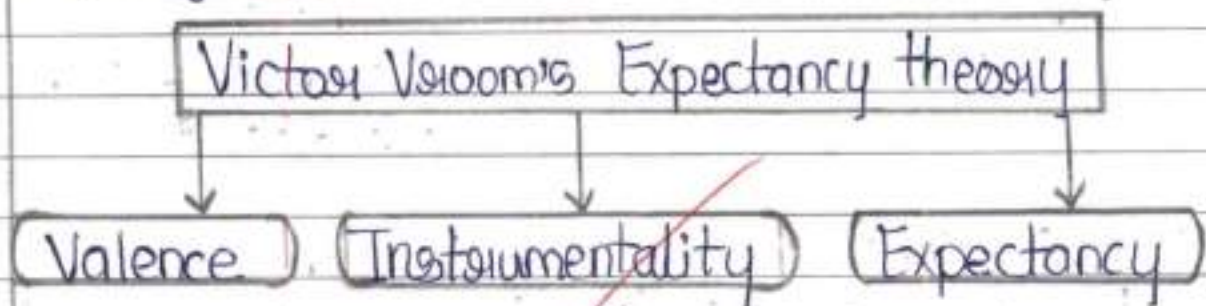 Victor Vroom's Expectancy theory
Valence Instrumentality Expectancy